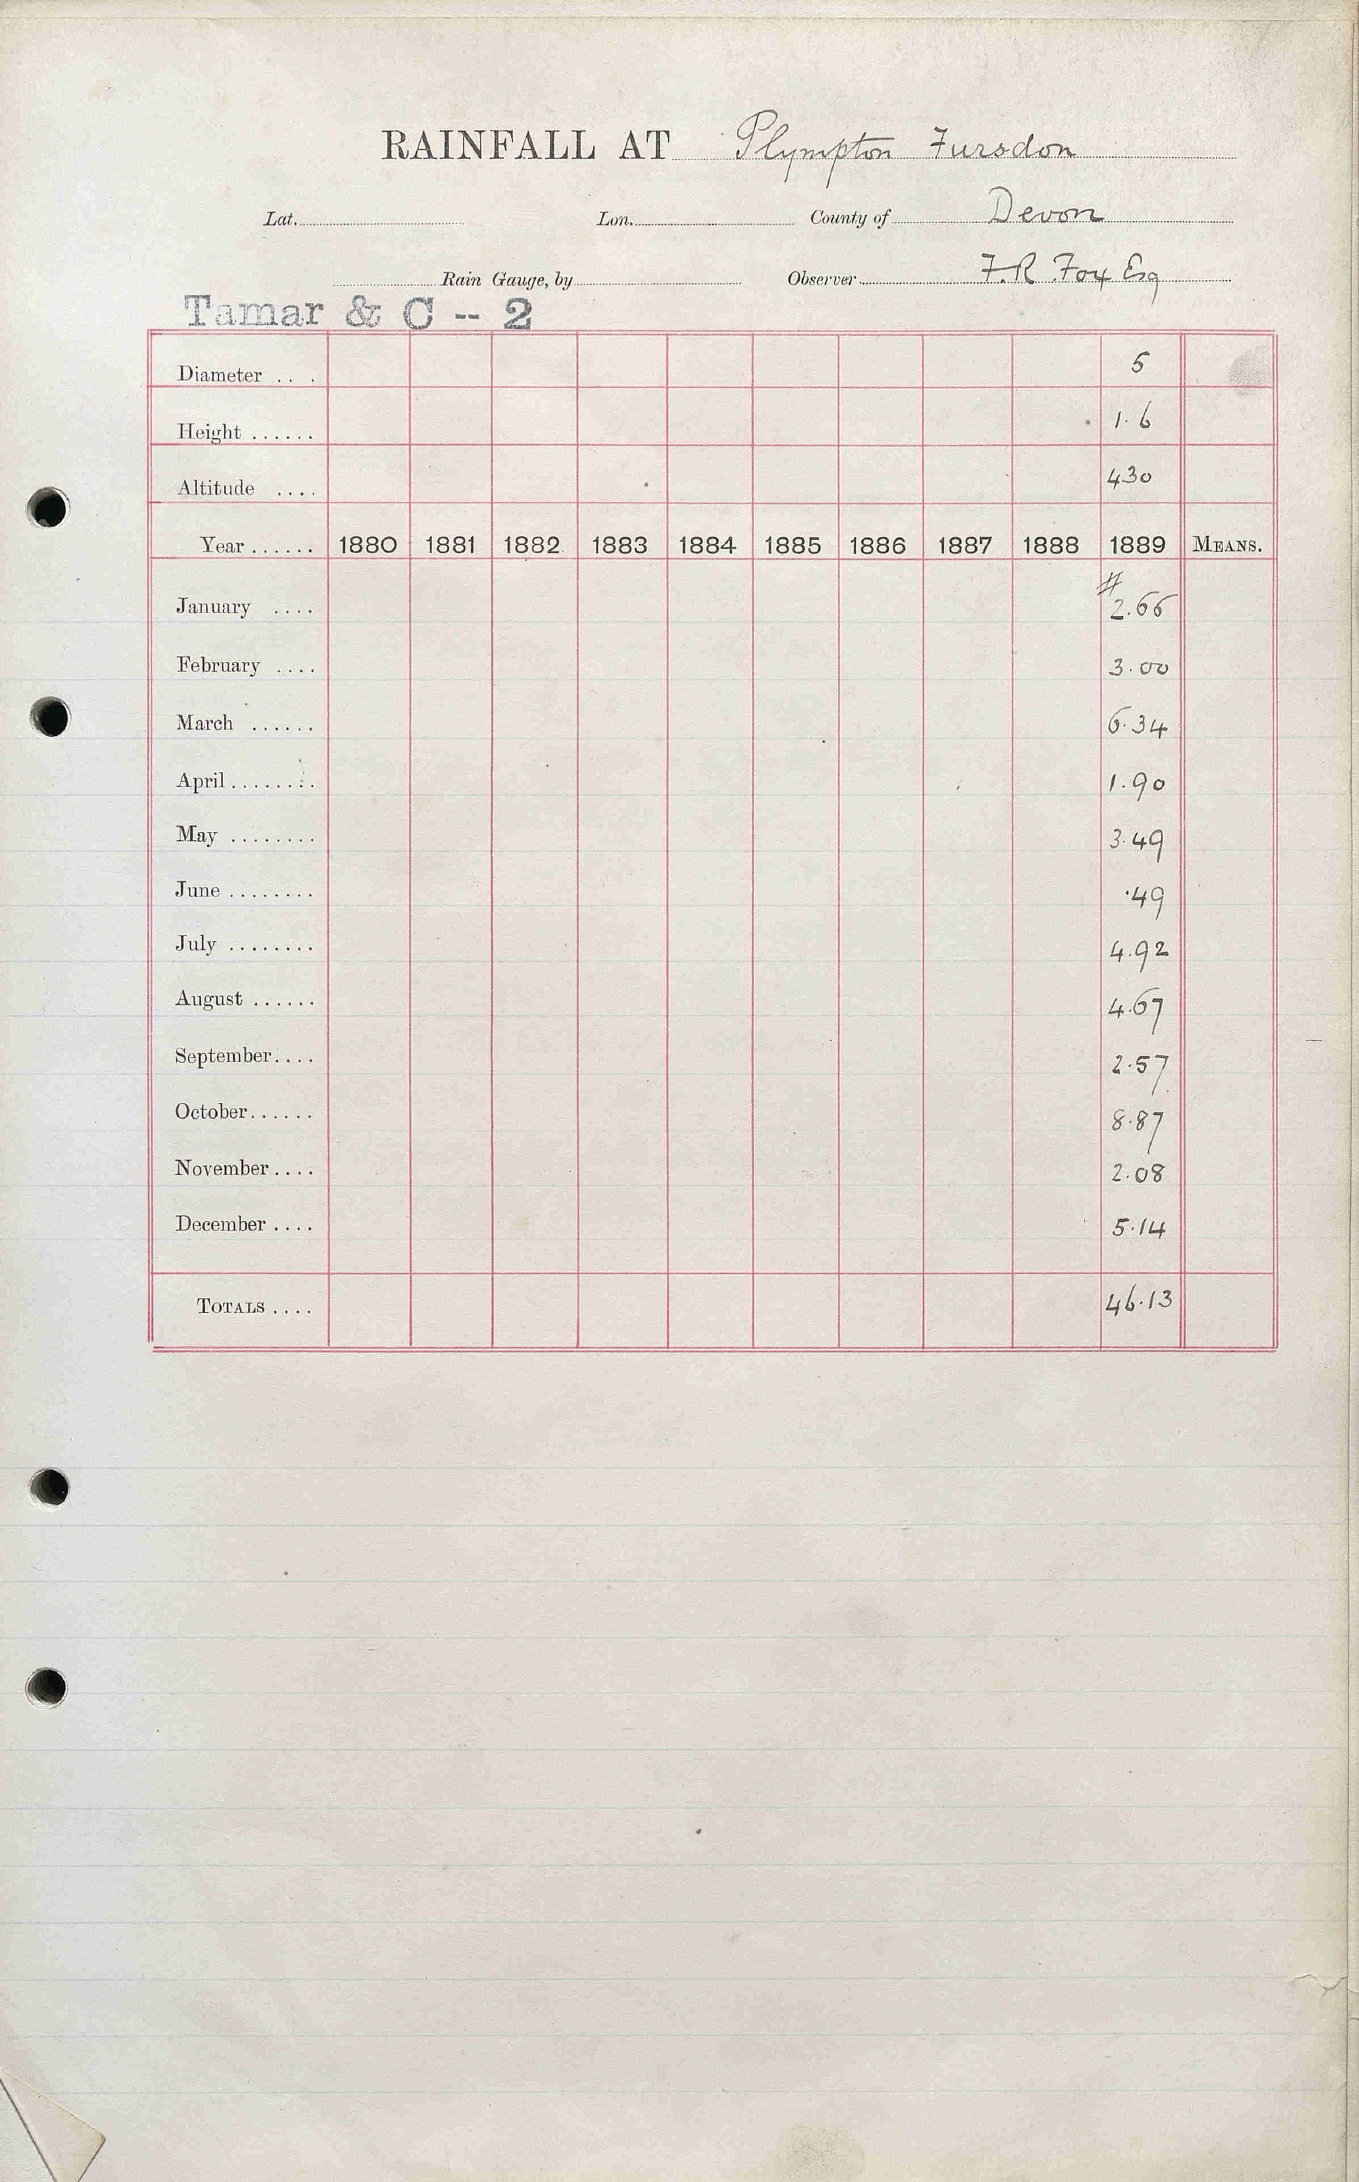 RAINFALL AT Plympton Fursdon
Lat. Lon. County of Devon
Rain Gauge, by Observer F.R Fox Esq
Tamar & C -- 2
Diameter . . . 5
Height ...... 1.6
Altitude .... 430
Year ...... 1880 1881 1882 1883 1884 1885 1886 1887 1888 1889 MEANS.
#
January .... 2.66
February .... 3.00
March ...... 6.34
April ........ 1.90
May ........ 3.49
June ........ .49
July ........ 4.92
August ...... 4.67
September.... 2.57
October...... 8.87
November.... 2.08
December .... 5.14
TOTALS .... 46.13